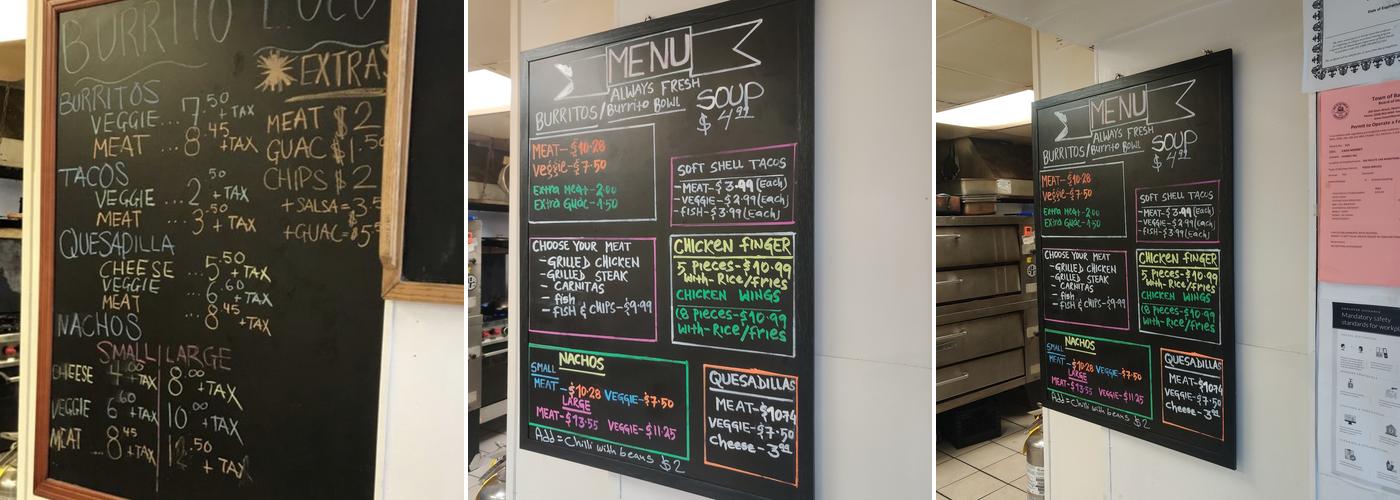 BURRITO LOCO
BURRITOS
VEGGIE... 7.50 +TAX
MEAT ... 8.45 +TAX
TACOS
VEGGIE ... 2.50 +TAX
MEAT ... 3.50 +TAX
QUESADILLA
CHEESE ... 5.50 +TAX
VEGGIE ... 6.60 +TAX
MEAT ... 8.45 +TAX
NACHOS
SMALL LARGE
CHEESE 4.00 +TAX 8.00 +TAX
VEGGIE 6.60 +TAX 10.00 +TAX
MEAT 8.45 +TAX .50 +TAX
EXTRAS
MEAT $2
GUAC $1.50
CHIPS $2
+SALSA=3.5
+GUAC=$5
MENU
ALWAYS FRESH
BURRITOS/Burrito BOWL
SOUP
$4.99
MEAT-$10.28
Veggie-$7.50
Extra Meat-2.00
Extra Guac-1.50
SOFT SHELL TACOS
-MEAT-$3.99(Each)
-VEGGIE-$2.99(Each)
-FISH-$3.99(Each)
CHOOSE YOUR MEAT
-GRILLED CHICKEN
-GRILLED STEAK
-CARNITAS
-fish
-fish & CHIPS-$9.99
CHICKEN FINGER
5 Pieces-$10.99
With-Rice/fries
CHICKEN WINGS
(8 Pieces-$10.99
With-Rice/fries
NACHOS
SMALL
MEAT-$10.28 VEGGIE-$7.50
LARGE
MEAT-$13.55 VEGGIE-$11.25
Add=Chilli with beans $2
QUESADILLAS
MEAT-$10.74
VEGGIE-$7.50
Cheese-3.99
MENU
ALWAYS FRESH
BURRITOS/Burrito BOWL
SOUP
$4.99
MEAT-$10.28
Veggie-$7.50
Extra Meat-2.00
Extra Guac-1.50
SOFT SHELL TACOS
-MEAT-$3.99(Each)
-VEGGIE-$2.99(Each)
-FISH-$3.99(Each)
CHOOSE YOUR MEAT
-GRILLED CHICKEN
-GRILLED STEAK
-CARNITAS
-fish
-fish & CHIPS-$9.99
CHICKEN FINGER
5 Pieces-$10.99
With-Rice/fries
CHICKEN WINGS
(8 Pieces-$10.99
With-Rice/fries
NACHOS
SMALL
MEAT-$10.28 VEGGIE-$7.50
LARGE
MEAT-$13.55 VEGGIE-$11.25
Add=Chilli with beans $2
QUESADILLAS
MEAT-$10.74
VEGGIE-$7.50
Cheese-3.99
Town of
Permit to Operate a
Mandatory safety
standards for